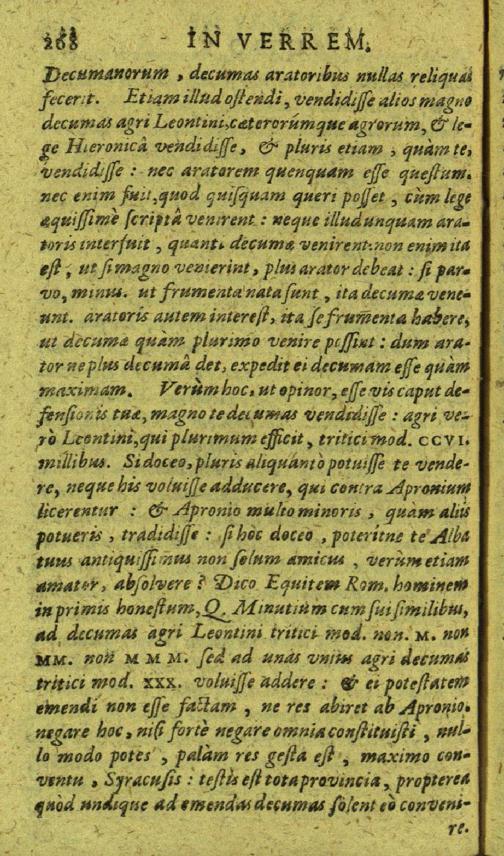 268 IN VERREM.
Decumanorum, decumas aratoribus nullas reliquas
fecerit. Etiam illud ostendi, vendidisse alios magno
decumas agri Leontini, cæterorúmque agrorum, & le-
ge Hieronicâ vendidisse, & pluris etiam, quàm te,
vendidisse: nec aratorem quenquam esse questum.
nec enim fuit, quod quisquam queri posset, cùm lege
æquissimè scriptâ venirent: neque illud unquam ara-
toris interfuit, quanti decumæ venirent: non enim ita
est, ut si magno venierint, plus arator debeat: si par-
vo, minus. ut frumenta nata sunt, ita decumæ vene-
unt. aratoris autem interest, ita se frumenta habere,
ut decumæ quàm plurimo venire possint: dum ara-
tor ne plus decumâ det, expedit ei decumam esse quàm
maximam. Verùm hoc, ut opinor, esse vis caput de-
fensionis tuæ, magno te decumas vendidisse: agri ve-
rò Leontini, qui plurimum efficit, tritici mod. CCVI.
millibus. Si doceo, pluris aliquantò potuisse te vende-
re, neque his voluisse adducere, qui contra Apronium
licerentur: & Apronio multo minoris, quàm aliis
potueris, tradidisse: si hoc doceo, poteritne te Alba
tuus antiquissimus non solum amicus, verùm etiam
amator, absolvere? Dico Equitem Rom. hominem
in primis honestum, Q. Minutium cum sui similibus,
ad decumas agri Leontini tritici mod. non. M. non
MM. non MMM. sed ad unas unius agri decumas
tritici mod. XXX. voluisse addere: & ei potestatem
emendi non esse factam, ne res abiret ab Apronio.
negare hoc, nisi fortè negare omnia constituisti, nul-
lo modo potes, palàm res gesta est, maximo con-
ventu, Syracusis: testis est tota provincia, propterea
quòd undique ad emendas decumas solent eò conveni-
re.